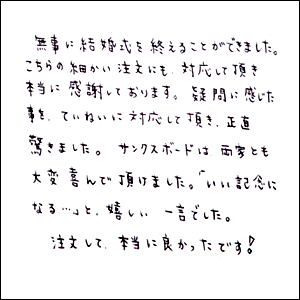 無事に結婚式を終えることができました。
こちらの細かい注文にも、対応して頂き
本当に感謝しております。疑問に感じた
事を、ていねいに対応して頂き、正直
驚きました。サンクスボードは、両家とも
大変喜んで頂けました。「いい記念に
なる…」と、嬉しい一言でした。
注文して、本当に良かったです!